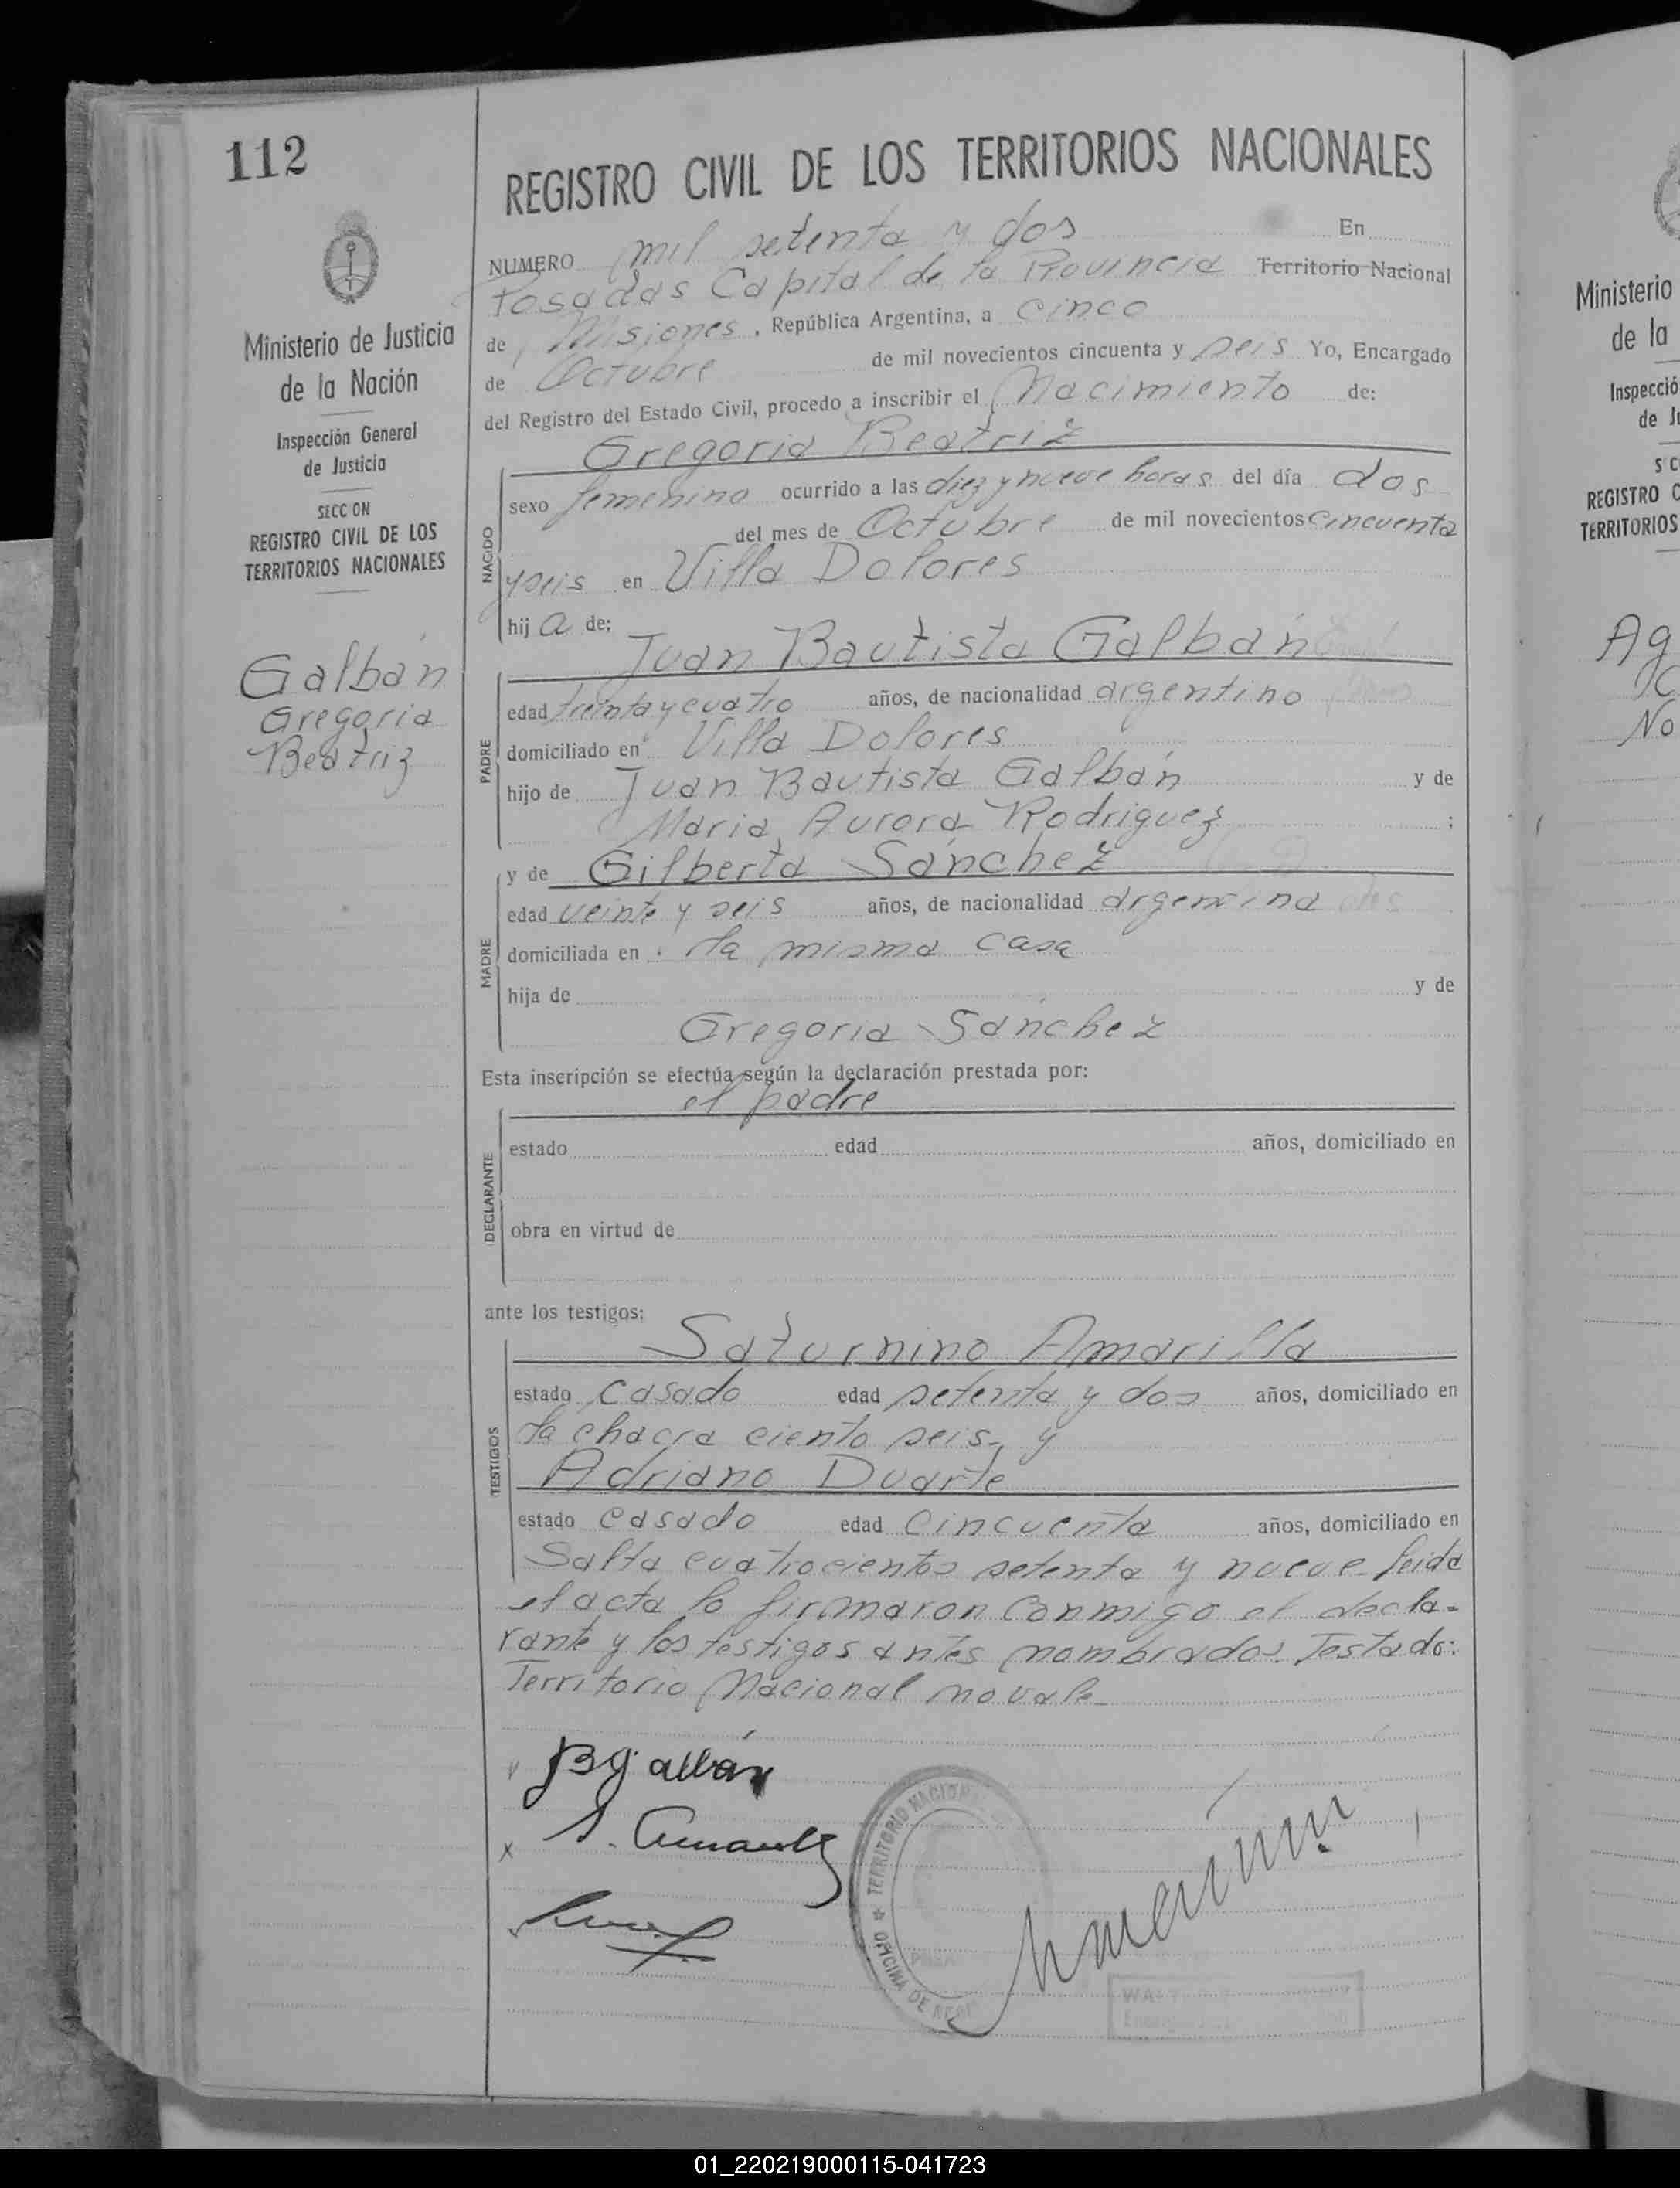 112
REGISTRO CIVIL DE LOS TERRITORIOS NACIONALES
Ministerio de Justicia
de la Nación
Inspección General
de Justicia
SECC ON
REGISTRO CIVIL DE LOS
TERRITORIOS NACIONALES
Galbán
Gregoria
Beatriz
NUMERO mil setenta y dos En
Posadas Capital de la Provincia Territorio Nacional
de Misiones, República Argentina, a cinco
de Octubre de mil novecientos cincuenta y seis Yo, Encargado
del Registro del Estado Civil, procedo a inscribir el Nacimiento de:
Gregoria Beatriz
NACIDO
sexo femenino ocurrido a las diez y nueve horas del día dos
del mes de Octubre de mil novecientos cincuenta
y seis en Villa Dolores
hij a de:
Juan Bautista Galbán
PADRE
edad treinta y cuatro años, de nacionalidad argentino
domiciliado en Villa Dolores
hijo de Juan Bautista Galbán y de
Maria Aurora Rodriguez ;
y de Gilberta Sánchez
MADRE
edad veinte y seis años, de nacionalidad argentina
domiciliada en la misma casa
hija de y de
Gregoria Sánchez
Esta inscripción se efectúa según la declaración prestada por:
el padre
DECLARANTE
estado edad años, domiciliado en
obra en virtud de
ante los testigos:
Saturnino Amarilla
TESTIGOS
estado casado edad setenta y dos años, domiciliado en
la chacra ciento seis, y
Adriano Duarte
estado casado edad cincuenta años, domiciliado en
Salta cuatrocientos setenta y nueve leida
el acta lo firmaron conmigo el decla-
rante y los testigos antes nombrados. Testado:
Territorio Nacional no vale
JBGalbán
TERRITORIO NACIONAL
OFICINA DE
Ministerio
de la
Inspecció
de Ju
REGISTRO C
TERRITORIOS
Ag
No
01_220219000115-041723